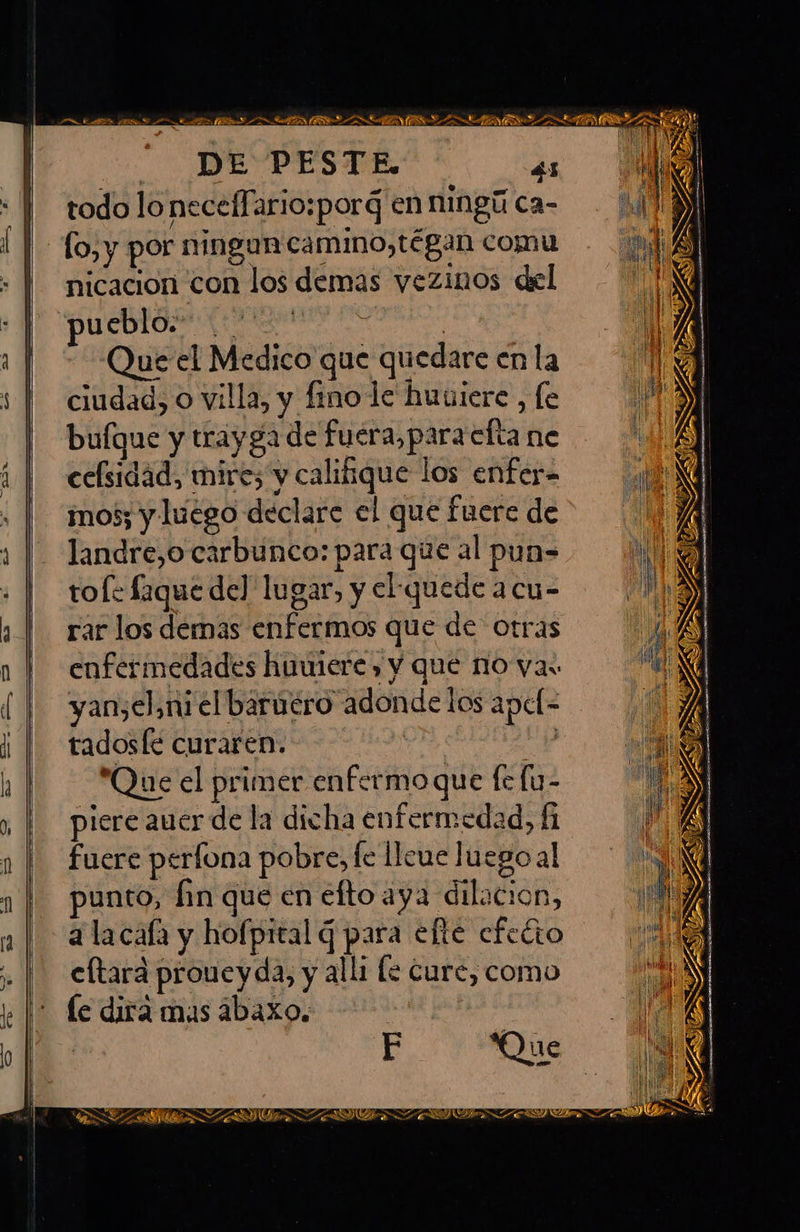 DE PESTE. 41
todo lo neceſſario:porq̃ en ningũ ca-
ſo,y por ningun camino,tẽgan comu
nicacion con los demas vezinos del
pueblo.
Que el Medico que quedare en la
ciudad, o villa, y ſino le huuiere , ſe
buſque y trayga de fuera,para eſta ne
ceſsidad, mire, y califique los enfer-
mos; y luego declare el que fuere de
landre,o carbunco: para que al pun-
to ſe ſaque del lugar, y el quede a cu-
rar los demas enfermos que de otras
enfermedades huuiere, y que no va-
yan,el,ni el baruero adonde los apeſ-
tados ſe curaren.
Que el primer enfermo que ſe ſu-
piere auer de la dicha enfermedad, ſi
fuere perſona pobre, ſe lleue luego al
punto, ſin que en eſto aya dilacion,
a la caſa y hoſpital q̃ para eſte efecto
eſtarà proueyda, y alli ſe cure, como
ſe dirà mas abaxo.
F Que